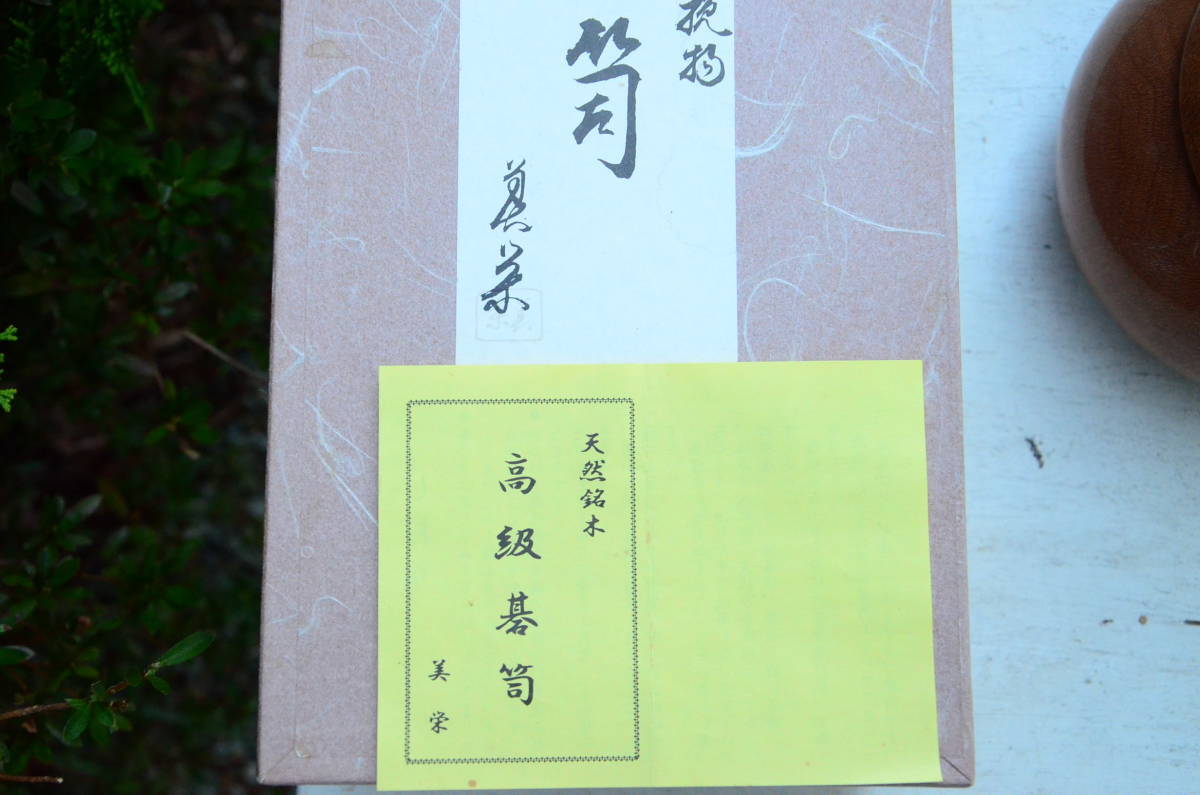 挽物
笥
美栄
天然銘木
高級碁笥
美栄